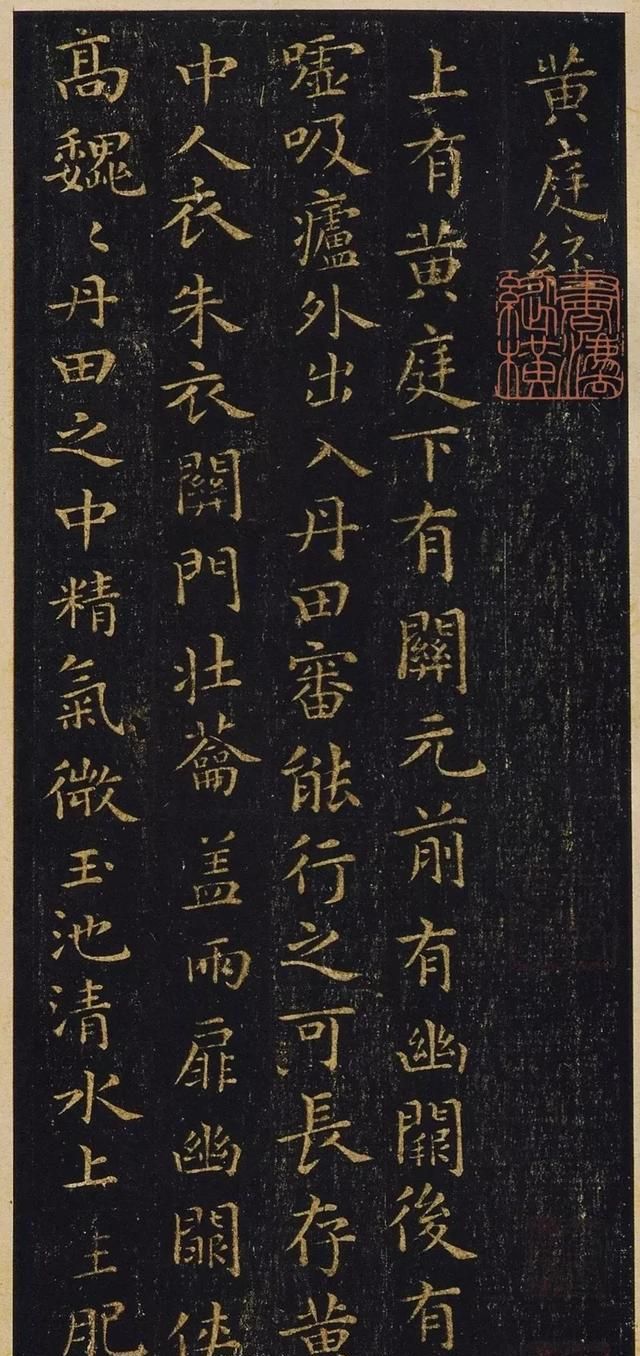 黄庭經
上有黄庭下有關元前有幽闕後有
噓吸廬外出入丹田審能行之可長存黄
中人衣朱衣關門壯蘥盖兩扉幽闕俠
高巍〻丹田之中精氣微玉池清水上生肥